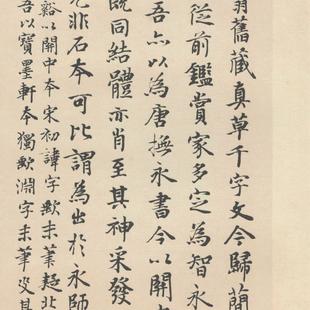 舊藏真草千字文今歸蘭
從前鑑賞家多定為智永
吾亦以為唐撫永書今以關
既同結體亦肖至其神采發
非石本可比謂為出於永師
谿以關中本宋初諱字歟末筆疑北
吾以寶墨軒本獨歟淵字末筆